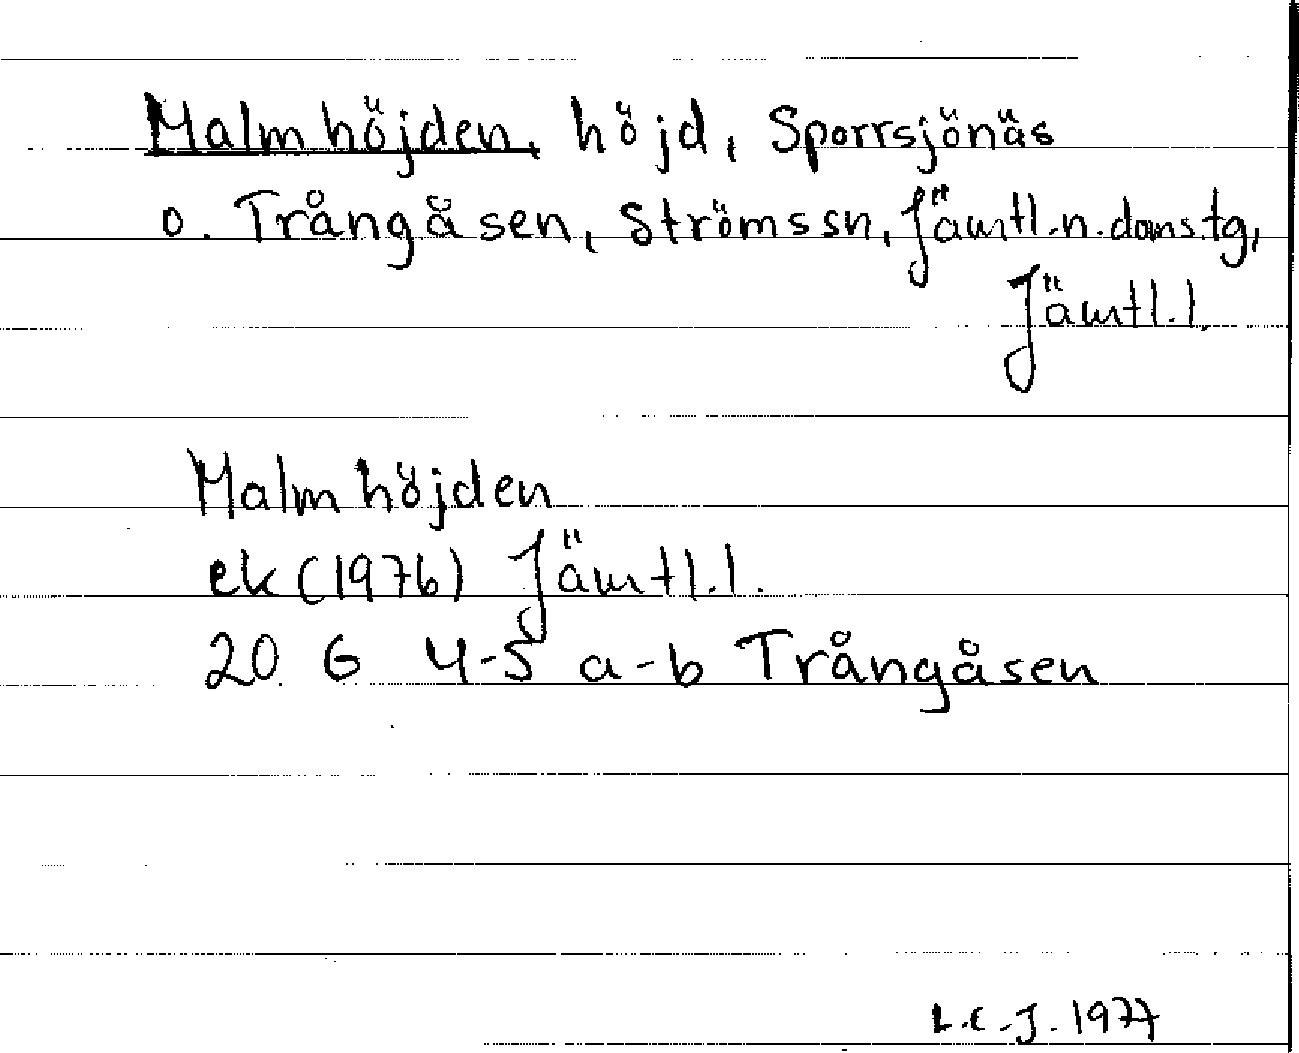 Malmhöjden, höjd, Sporrsjönäs
o. Trångåsen, Ströms sn, Jämtl. n. doms.tg,
Jämtl. l.
Malmhöjden
ek (1976) Jämtl. l.
20 G 4-5 a-b Trångåsen
L.C.J. 1977